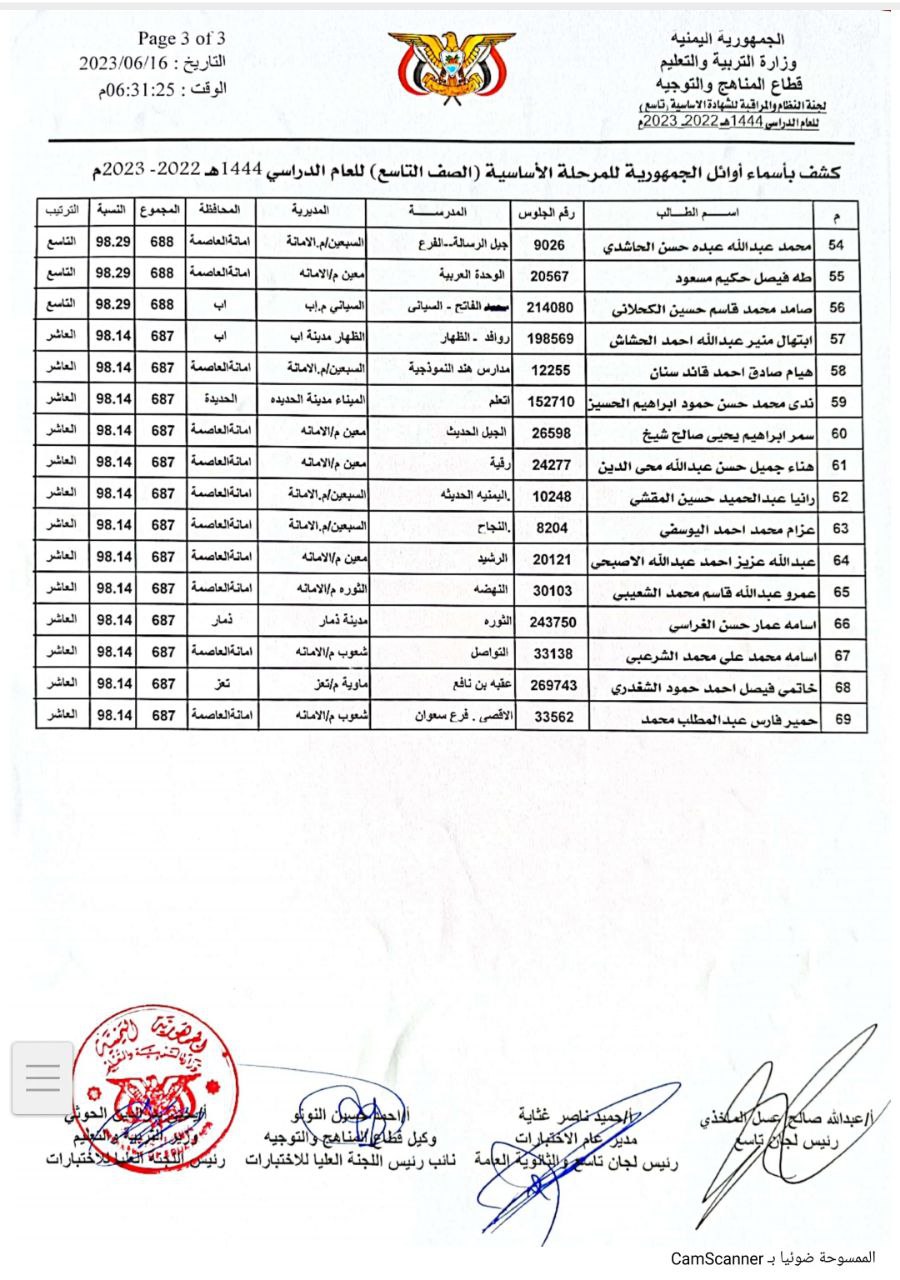 الجمهورية اليمنيه
وزارة التربية والتعليم
قطاع المناهج والتوجيه
لجنة النظام والمراقبة للشهادة الاساسية (تاسع)
للعام الدراسي 1444هـ 2022ـ 2023م
Page 3 of 3
التاريخ : 2023/06/16
الوقت : 06:31:25م
كشف بأسماء أوائل الجمهورية للمرحلة الأساسية (الصف التاسع) للعام الدراسي 1444هـ 2022- 2023م
م اسم الطالب رقم الجلوس المدرسة المديرية المحافظة المجموع النسبة الترتيب
54 محمد عبدالله عبده حسن الحاشدي 9026 جيل الرسالة--الفرع السبعين/م.الامانة امانةالعاصمة 688 98.29 التاسع
55 طه فيصل حكيم مسعود 20567 الوحدة العربية معين م/الامانه امانةالعاصمة 688 98.29 التاسع
56 صامد محمد قاسم حسين الكحلانى 214080 الفاتح - السيانى السياني م.إب اب 688 98.29 التاسع
57 ابتهال منير عبدالله احمد الحشاش 198569 روافد - الظهار الظهار مدينة اب اب 687 98.14 العاشر
58 هيام صادق احمد قائد سنان 12255 مدارس هند النموذجية السبعين/م.الامانة امانةالعاصمة 687 98.14 العاشر
59 ندى محمد حسن حمود ابراهيم الحسيز 152710 اتعلم الميناء مدينة الحديده الحديدة 687 98.14 العاشر
60 سمر ابراهيم يحيى صالح شيخ 26598 الجيل الحديث معين م/الامانه امانةالعاصمة 687 98.14 العاشر
61 هناء جميل حسن عبدالله محى الدين 24277 رقية معين م/الامانه امانةالعاصمة 687 98.14 العاشر
62 رانيا عبدالحميد حسين المقشي 10248 .اليمنيه الحديثه السبعين/م.الامانة امانةالعاصمة 687 98.14 العاشر
63 عزام محمد احمد اليوسفي 8204 .النجاح السبعين/م.الامانة امانةالعاصمة 687 98.14 العاشر
64 عبدالله عزيز احمد عبدالله الاصبحى 20121 الرشيد معين م/الامانه امانةالعاصمة 687 98.14 العاشر
65 عمرو عبدالله قاسم محمد الشعيبي 30103 النهضه الثوره م/الامانه امانةالعاصمة 687 98.14 العاشر
66 اسامه عمار حسن الغراسي 243750 الثوره مدينة ذمار ذمار 687 98.14 العاشر
67 اسامه محمد على محمد الشرعبي 33138 التواصل شعوب م/الامانه امانةالعاصمة 687 98.14 العاشر
68 خاتمي فيصل احمد حمود الشغدري 269743 عقبه بن نافع ماوية م/تعز تعز 687 98.14 العاشر
69 حمير فارس عبدالمطلب محمد 33562 الاقصى . فرع سعوان شعوب م/الامانه امانةالعاصمة 687 98.14 العاشر
أ/عبدالله صالح عسل الماخذي
رئيس لجان تاسع
أ/حميد ناصر غثاية
مدير عام الاختبارات
رئيس لجان تاسع والثانوية العامة
أ/احمد حسين النونو
وكيل قطاع المناهج والتوجيه
نائب رئيس اللجنة العليا للاختبارات
الحوثي
وزير التربية والتعليم
رئيس اللجنة العليا للاختبارات
الجمهورية اليمنية
وزارة التربية والتعليم
الممسوحة ضوئيا بـ CamScanner